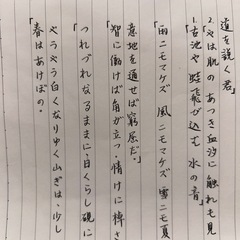 道を説く君。
2. やは肌のあつき血汐に触れも見
1. 古池や蛙飛び込む水の音
「雨ニモマケズ 風ニモマケズ 雪ニモ夏
意地を通せば窮屈だ。
「智に働けば角が立つ。情けに棹さ
「つれづれなるままに、日くらし硯に
やうやう白くなりゆく山ぎは、少し
「春はあけぼの。